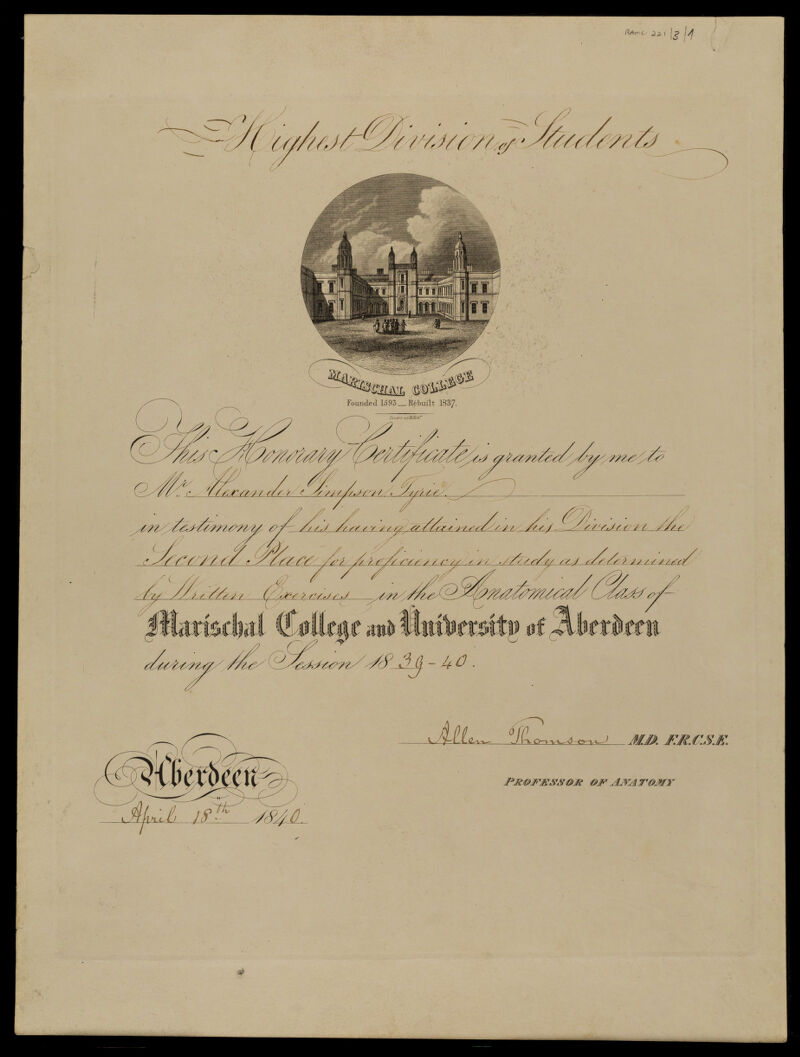 RAMC 221/3/1
Highest Division of Students
MARISCHAL COLLEGE
Founded 1593 — Rebuilt 1837.
This Honorary Certificate is granted by me to
Mr. Alexander Simpson Tyrie.
in testimony of his having attained in his Division the
Second Place for proficiency in study as determined
by Written Exercises in the Anatomical Class of
Marischal College and University of Aberdeen
during the Session 1839-40.
Allen Thomson M.D. F.R.C.S.E.
PROFESSOR OF ANATOMY
Aberdeen
April 18th 1840.